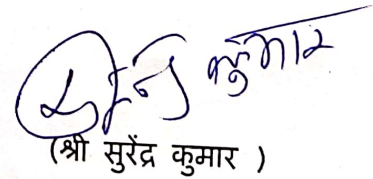 सुरेन्द्र कुमार
(श्री सुरेंद्र कुमार )